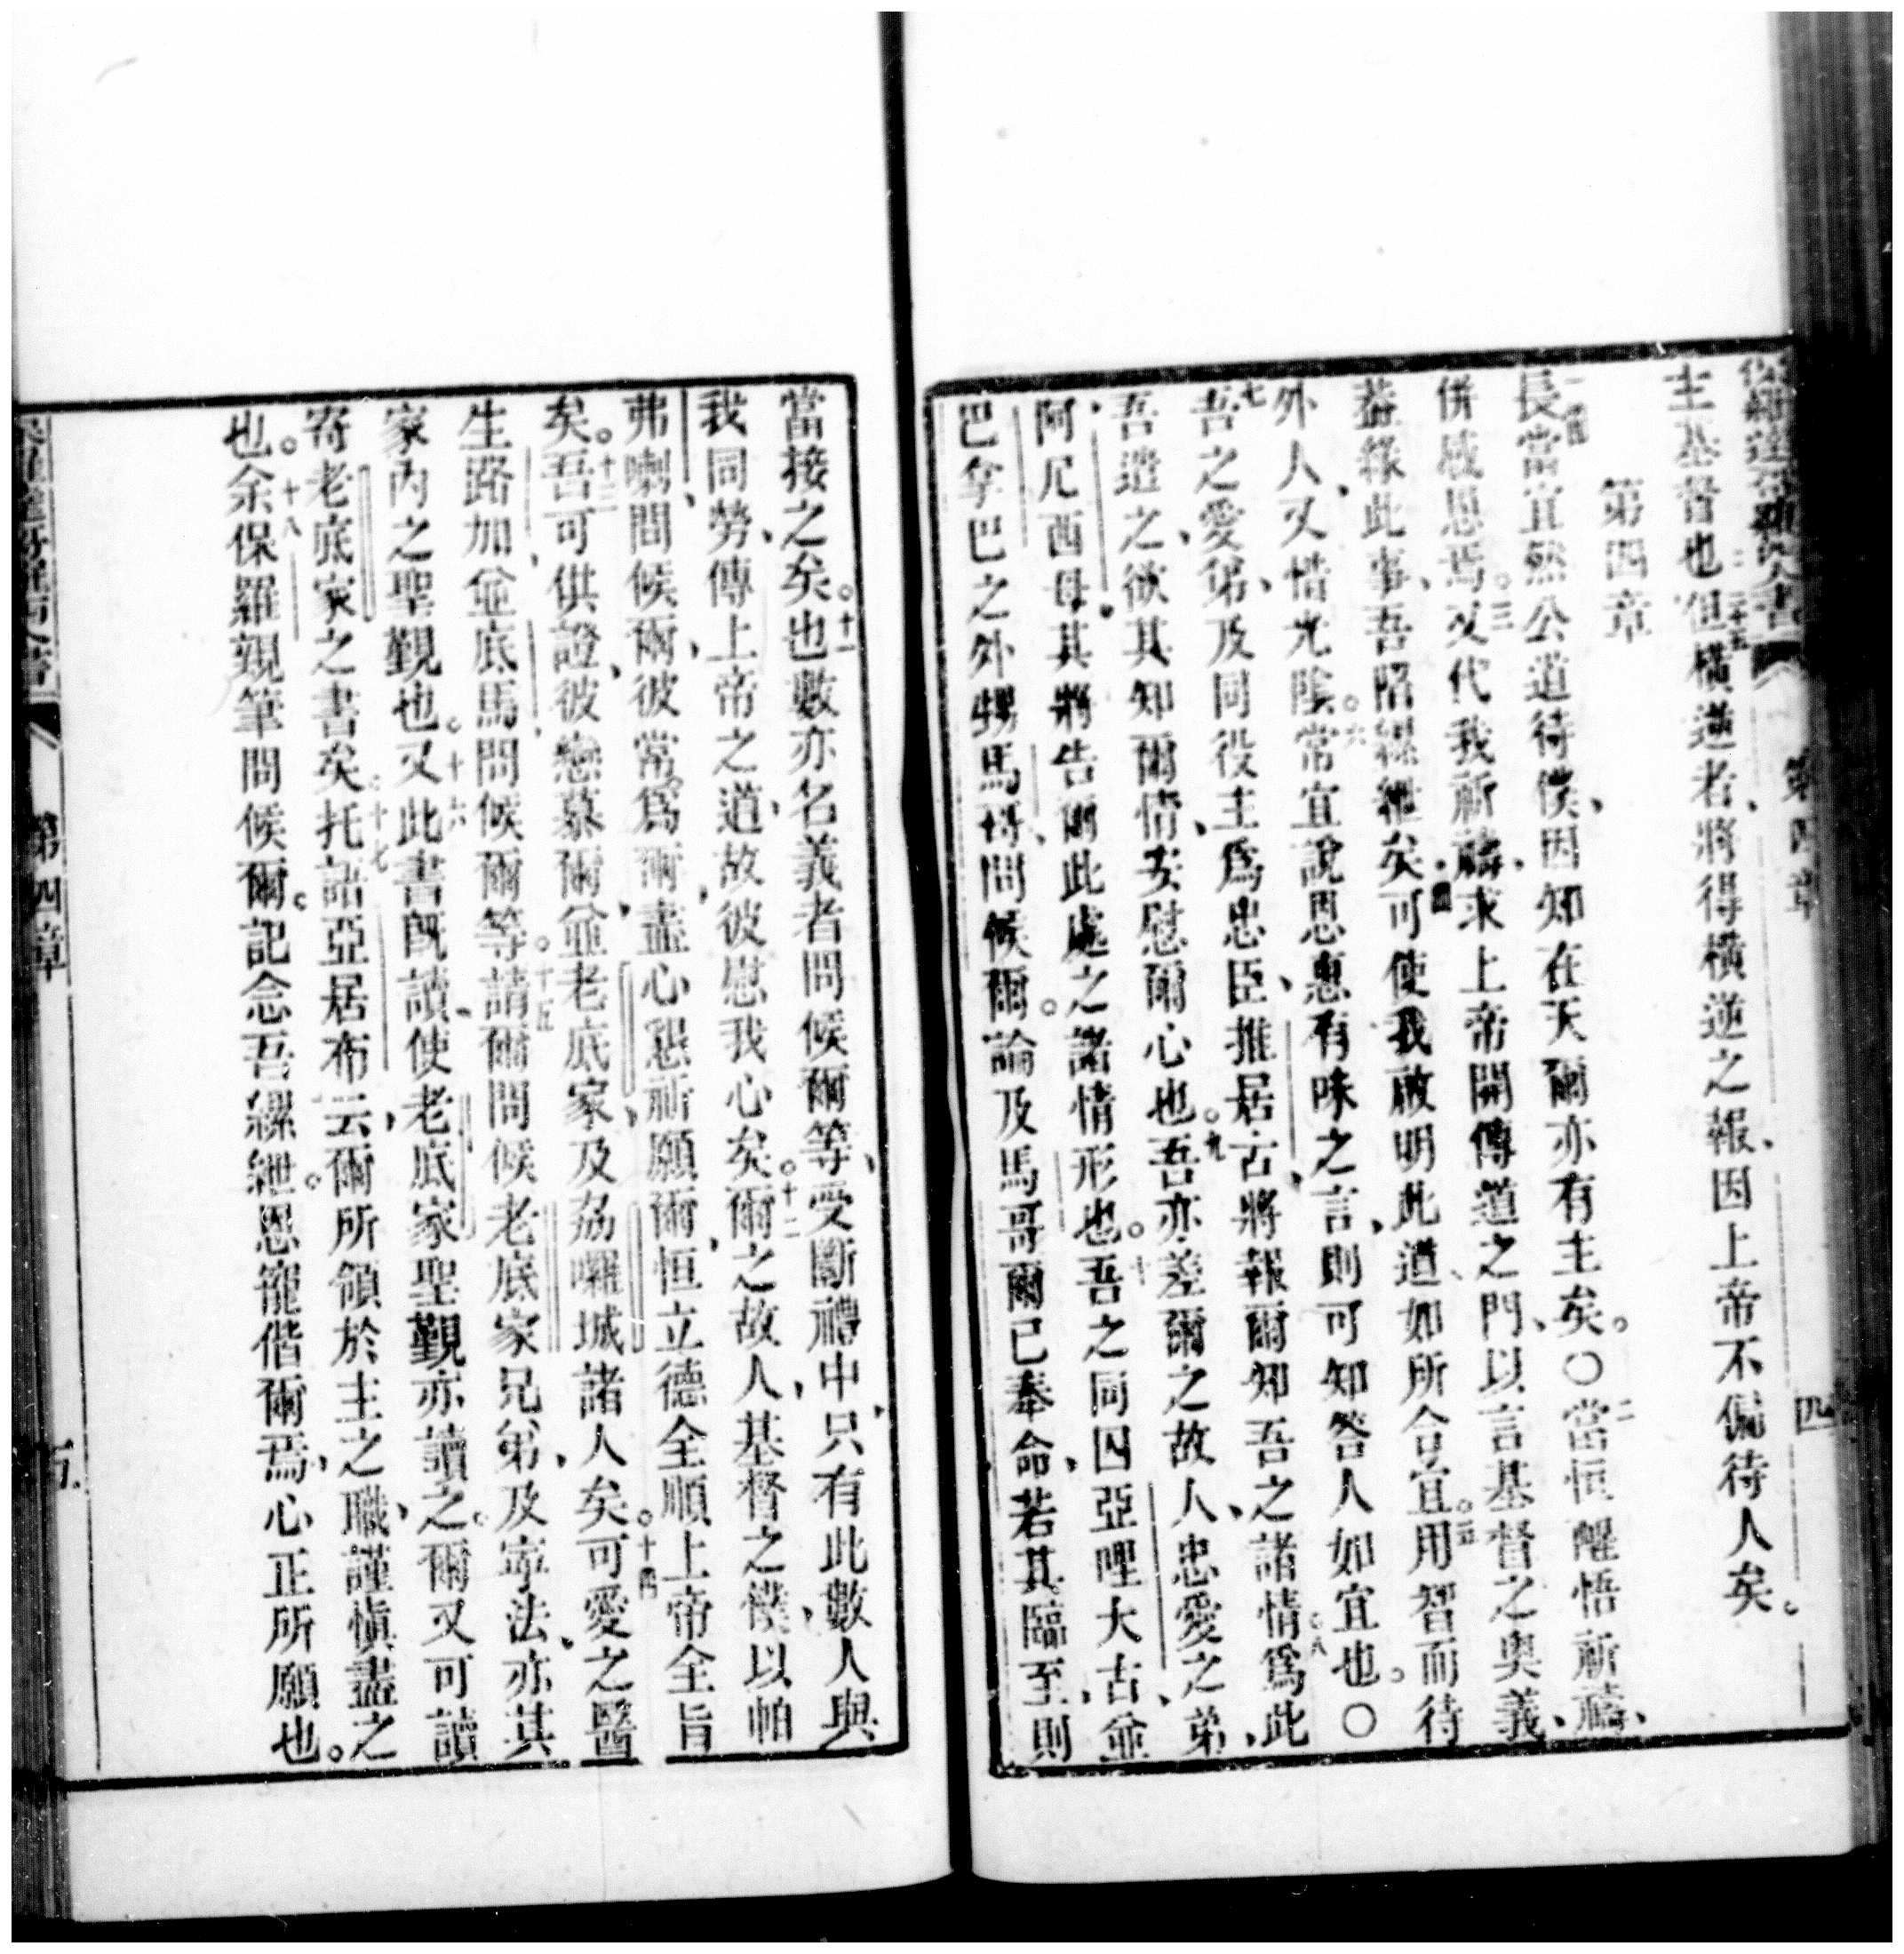 主基督也二十五但橫逆者、將得橫逆之報、因上帝不偏待人矣。
第四章
一長當宜然公道待僕、因知在天爾亦有主矣。○二當恒醒悟祈禱、
併感恩焉。三又代我祈禱、求上帝開傳道之門、以言基督之奧義、
葢緣此事、吾陷縲絏矣。四可使我啟明此道、如所合宜。五用智而待
外人、又惜光陰。六常宜說恩惠有味之言、則可知答人如宜也。○
七吾之愛弟、及同役主為忠臣、推居古、將報爾知吾之諸情。八為此
吾遣之、欲其知爾情、安慰爾心也。九吾亦差爾之故人、忠愛之弟、
阿尼西母、其將告爾此處之諸情形也。十吾之同囚亞哩大古、並
巴拿巴之外甥馬哥、問候爾。論及馬哥爾已奉命、若其臨至、則
當接之矣。十一也數亦名義者問候爾等、受斷禮中、只有此數人與
我同勞、傳上帝之道、故彼慰我心矣。十二爾之故人、基督之僕、以帕
弗喇問候爾、彼常為爾、盡心懇祈願爾、恒立德全順上帝全旨
矣。十三吾可供證、彼戀慕爾、並老底家、及荔囉城諸人矣。十四可愛之醫
生路加、並底馬、問候爾等。十五請爾問候老底家兄弟、及寧法、亦其
家內之聖覲也。十六又此書既讀、使老底家聖覲亦讀之。爾又可讀
寄老底家之書矣。十七托語亞居布云、爾所領於主之職、謹慎盡之
也。十八余保羅親筆問候爾。記念吾縲絏。恩寵偕爾焉、心正所願也。
第四章